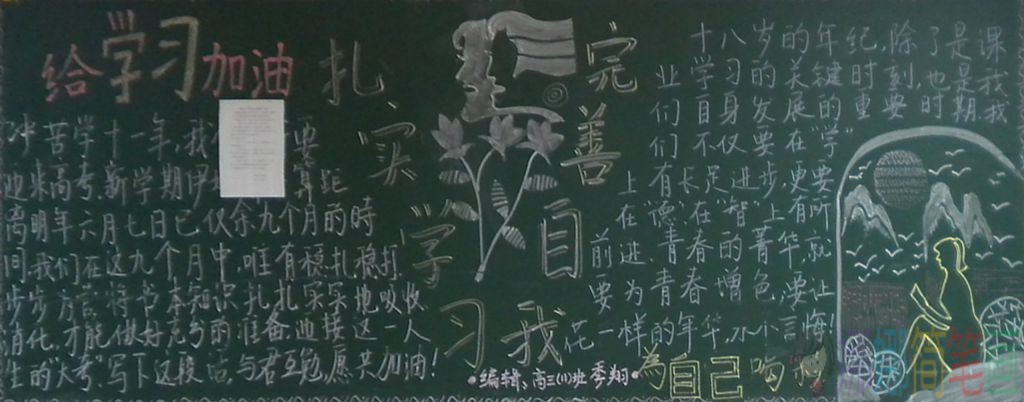 给学习加油
扎实学习
完善自我
冲苦学十一年,我 要
迎来高考,新学期伊 算距
离明年六月七日已仅余九个月的時
间,我们在这九个月中,唯有稳扎稳打
步步 将书本知识扎扎实实地吸收
消化,才能做好充分的准备迎接这一人
生的“大考”.写下这段话,与君互勉,愿共加油!
十八岁的年纪,除了是课
业学习的关键时刻,也是我
们自身发展的重要时期.我
们不仅要在“学”
上有长足进步,更要
在“德”在“智”上有所
前进.青春的菁华,
要为青春增色,要让
花一样的年华,
•编辑:高三(11)班 季翔•
為自己
简笔